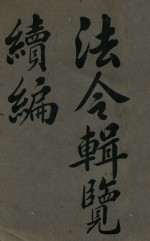 法令輯覽
續編